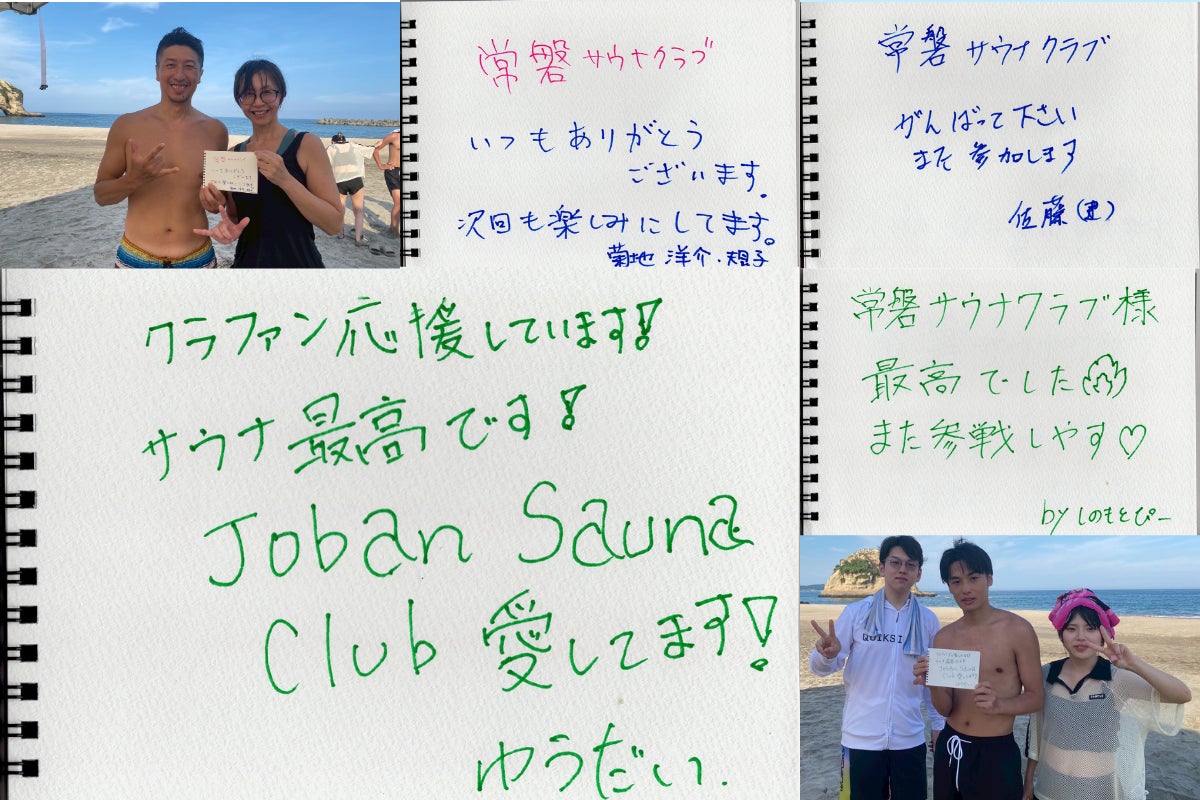 常磐サウナクラブ
いつもありがとう
ございます。
次回も楽しみにしてます。
菊地 洋介・規子
常磐サウナクラブ
がんばって下さい
また参加します
佐藤(建)
クラファン応援しています!
サウナ最高です!
Joban Sauna
Club 愛してます!
ゆうだい.
常磐サウナクラブ様
最高でした
また参戦しやす♡
by しのもとぴー
QUIKSI
クラファン応援しています!
サウナ最高です!
Joban Sauna
Club 愛してます!